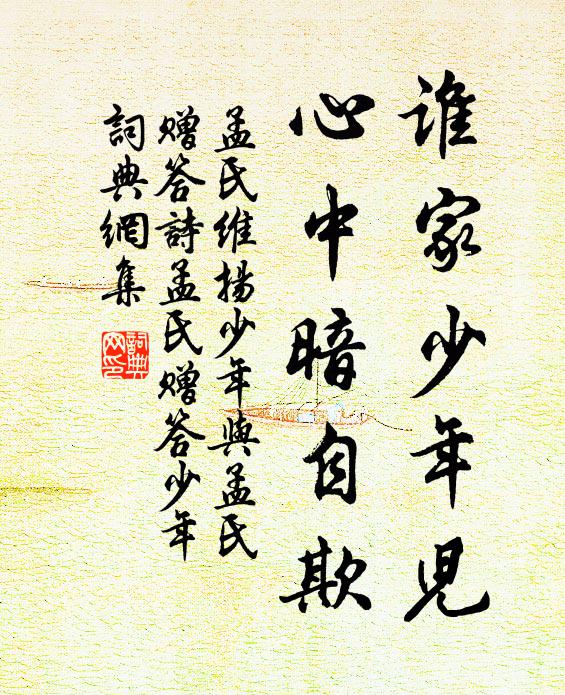 誰家少年兒
心中暗自欺
孟氏維揚少年與孟氏
贈答詩孟氏贈答少年
詞典網集
詞典
网印